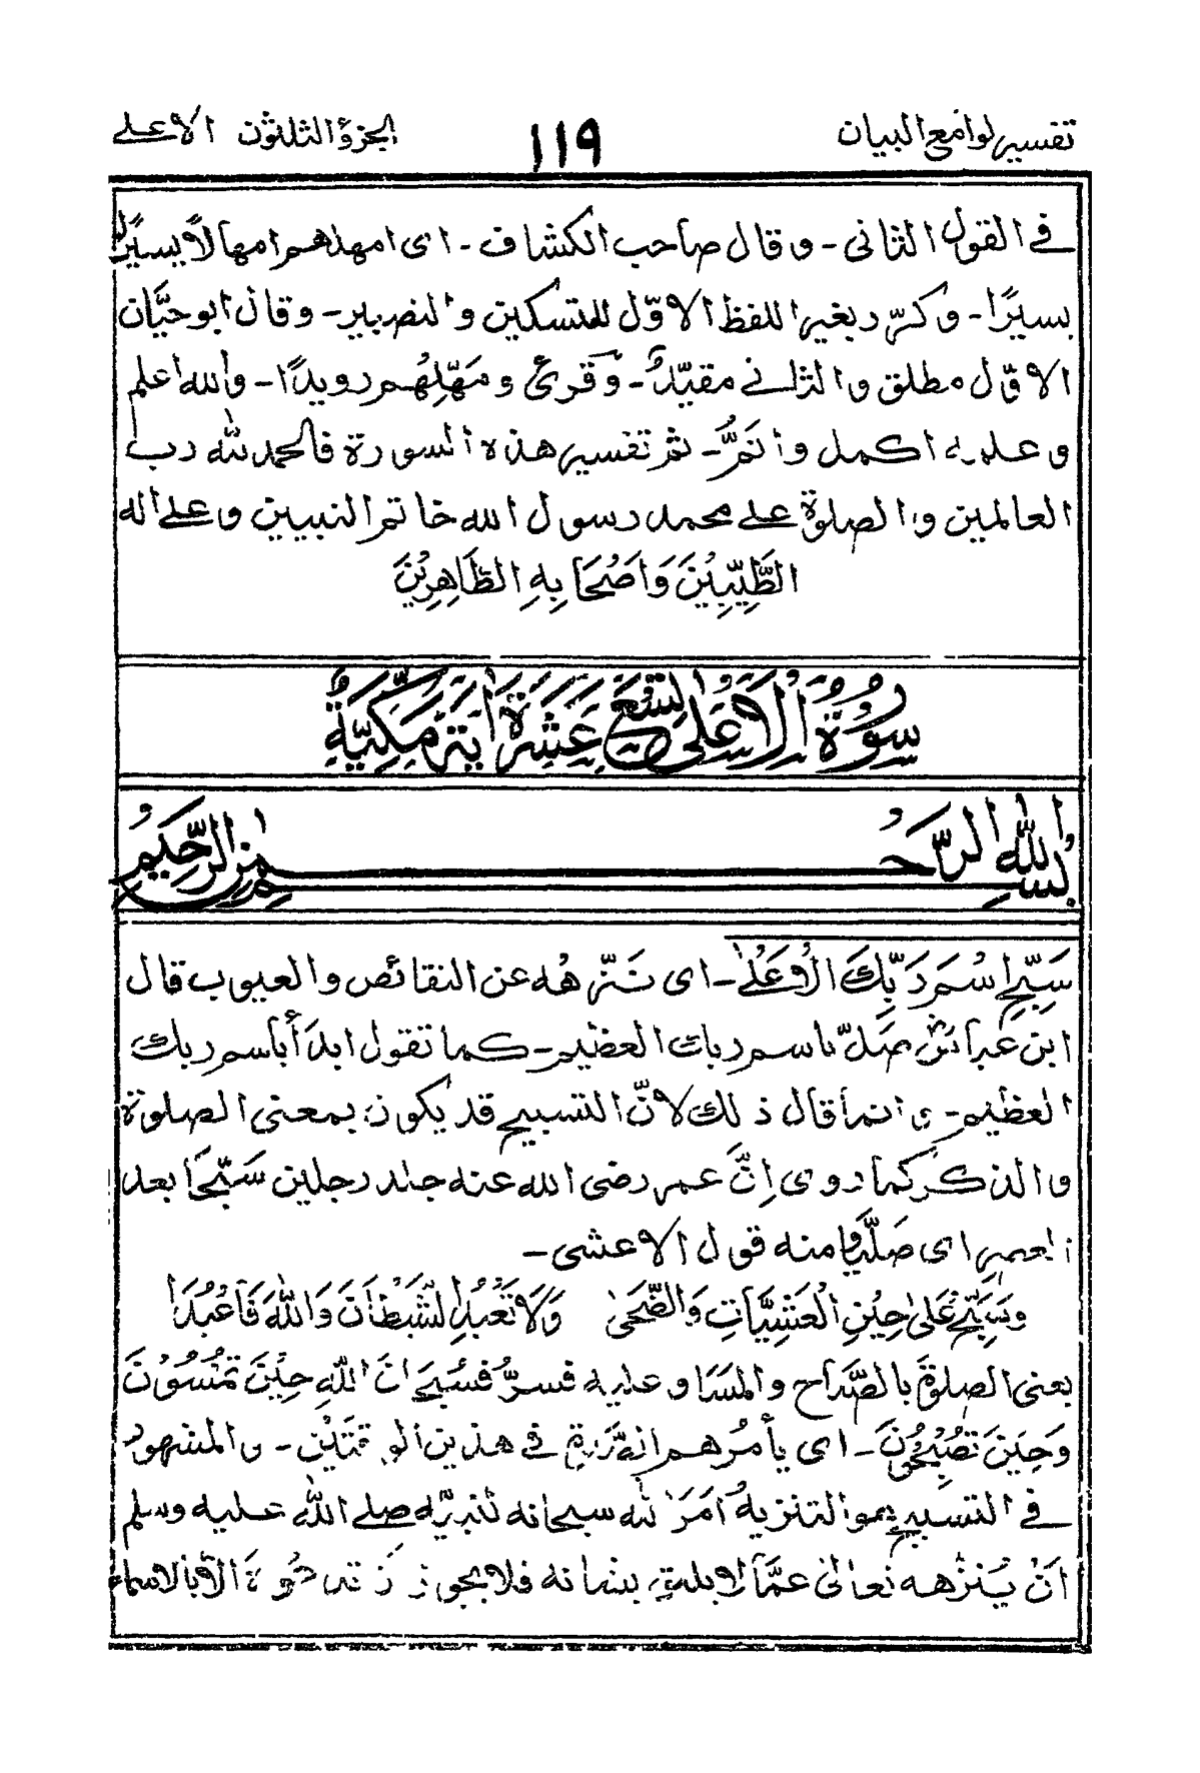 تفسير لوامع البيان ١١٩ الجزؤ الثلثون الاعلى
فى القول الثانى - وقال صاحب الكشاف - اى امهلهم امهالاً يسيرًا
يسيرًا - وكرّر بغير اللفظ الاوّل للتسكين والتصبير - وقال ابوحيّان
الاوّل مطلق والثانى مقيّدٌ - وقرئ ومَهِّلِهُم رويدًا - والله اعلم
وعلمه اكمل وأتمُّ - تم تفسير هذه السورة فالحمد لله رب
العالمين والصلوة على محمد رسول الله خاتم النبيين وعلى اله
الطَّيِّبِيْنَ وَاَصْحَابِهِ الطَّاهِرِيْنَ
سُوْرَةُ الْاَعْلٰى تِسْعَ عَشَرَةَ اٰيَةً مَكِّيَّةٌ
بِسْمِ اللهِ الرَّحْمٰنِ الرَّحِيْمِ
سَبِّحِ اسْمَ رَبِّكَ الْاَعْلٰى - اى نَزِّهْهُ عن النقائص والعيوب قال
ابن عباسؓ صَلِّ باسم ربك العظيم - كما تقول ابدأ باسم ربك
العظيم - وانما قال ذلك لانّ التسبيح قد يكون بمعنى الصلوة
والذكر كما روى اِنَّ عمر رضى الله عنه جلد رجلين سَبَّحَا بعد
العصر اى صَلَّيا ومنه قول الاعشى -
وَسَبِّحْ عَلىٰ حِيْنِ الْعَشِيَّاتِ وَالضُّحىٰ وَلَا تَعْبُدِ الشَّيْطَانَ وَاللهَ فَاعْبُدَا
يعنى الصلوةَ بالصَّباح والمَسَا وعليه فسرُّ فَسُبْحَانَ اللهِ حِيْنَ تُمْسُوْنَ
وَحِيْنَ تُصْبِحُوْنَ - اى يأمُرُهم فى هذين الوقتَيْن - والمشهور
فى التسبيح هو التنزيهُ اَمَرَ الله سبحانه نبيَّه صلى الله عليه وسلم
اَنْ يُنزّهه تعالىٰ عمَّا لا يليق بشانه فلا يجوز الّا بالاسماء